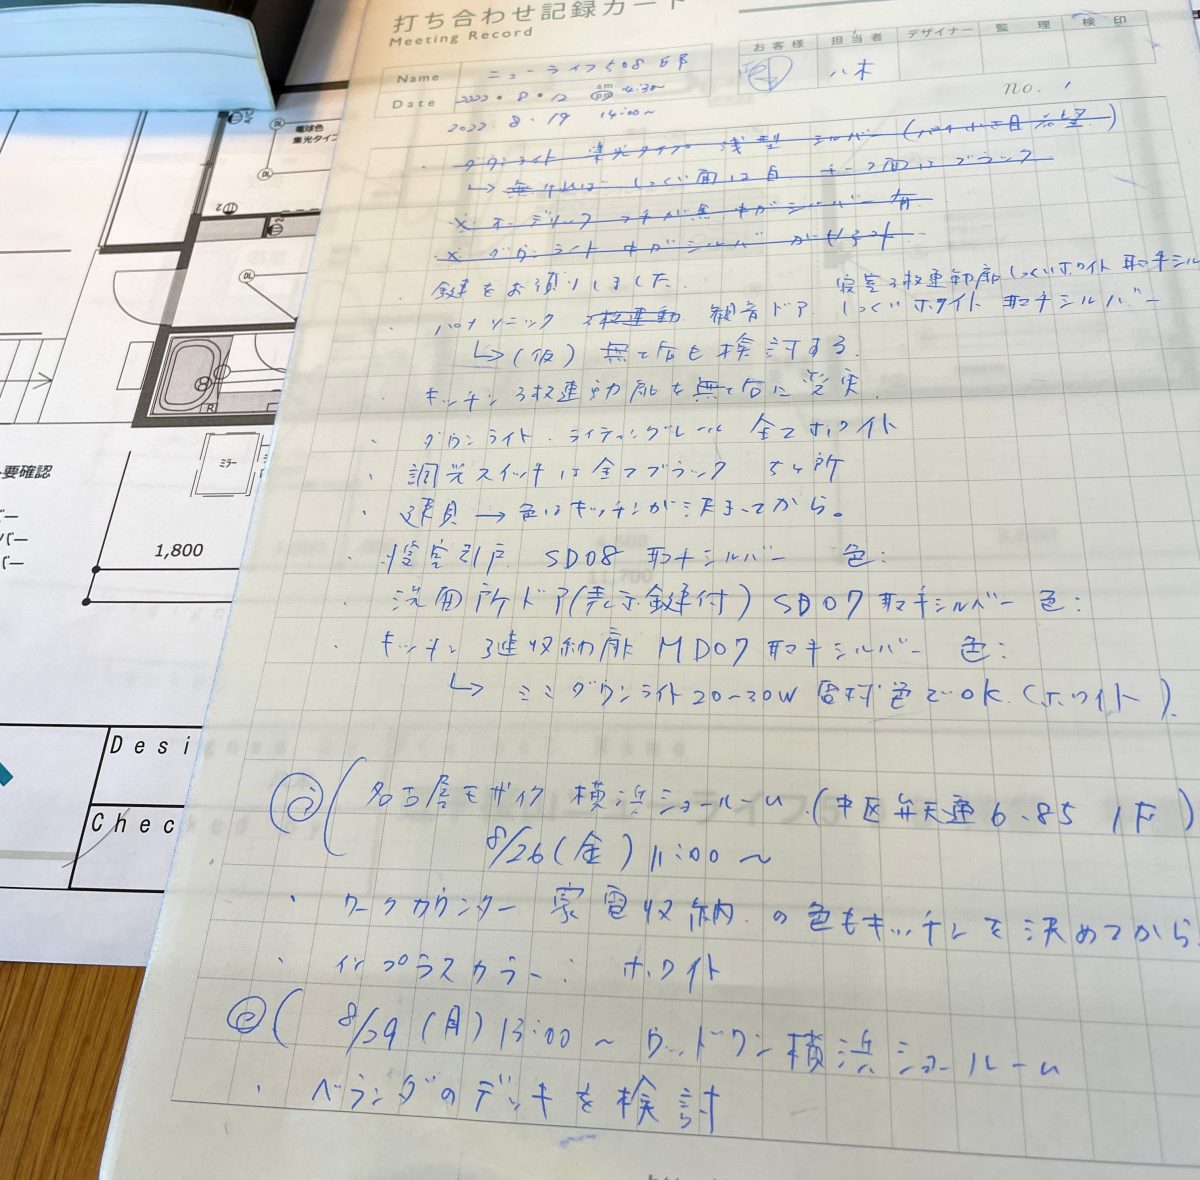 打ち合わせ記録カード
Meeting Record
お客様 担当者 デザイナー 監理 検印
八木
Name ニューライフ508 邸
Date 2022・8・12 am pm 4:30〜
no. 1
2022. 8. 19 14:00〜
・ ダウンライト 集光タイプ 浅型 シルバー
↳ 無ければ しっくい面は白 チーク面はブラック
× オーデリック フチが黒 中がシルバー 有
× ダウンライト 中がシルバー
・ 鍵をお預りしました.
寝室3枚連動扉 しっくいホワイト 取手シル
・ パナソニック 3枚連動 観音ドア しっくいホワイト 取手シルバー
↳ (仮) 無で台も検討する.
・ キッチン3枚連動扉を無で台に変更
・ ダウンライト. ライティングレール 全てホワイト
・ 調光スイッチは全てブラック 5ヶ所
・ 建具 → 色はキッチンが決まってから。
・ 寝室引戸. SD08 取手シルバー 色:
・ 洗面所ドア(表示錠付) SD07 取手シルバー 色:
・ キッチン 3連収納扉 MD07 取手シルバー 色:
↳ ミニダウンライト 20-30W 電球色でOK. (ホワイト).
名古屋モザイク 横浜ショールーム. (中区弁天通6.85 1F)
8/26(金) 11:00〜
・ ワークカウンター 家電収納. の色もキッチンを決めてから
・ インプラスカラー: ホワイト
8/29 (月) 13:00〜 ウッドワン横浜ショールーム
・ ベランダのデッキを検討
電球色
集光タイ
DL
DL
DL
R
ミラー
要確認
バー
バー
バー
1,800
Desi
Chec